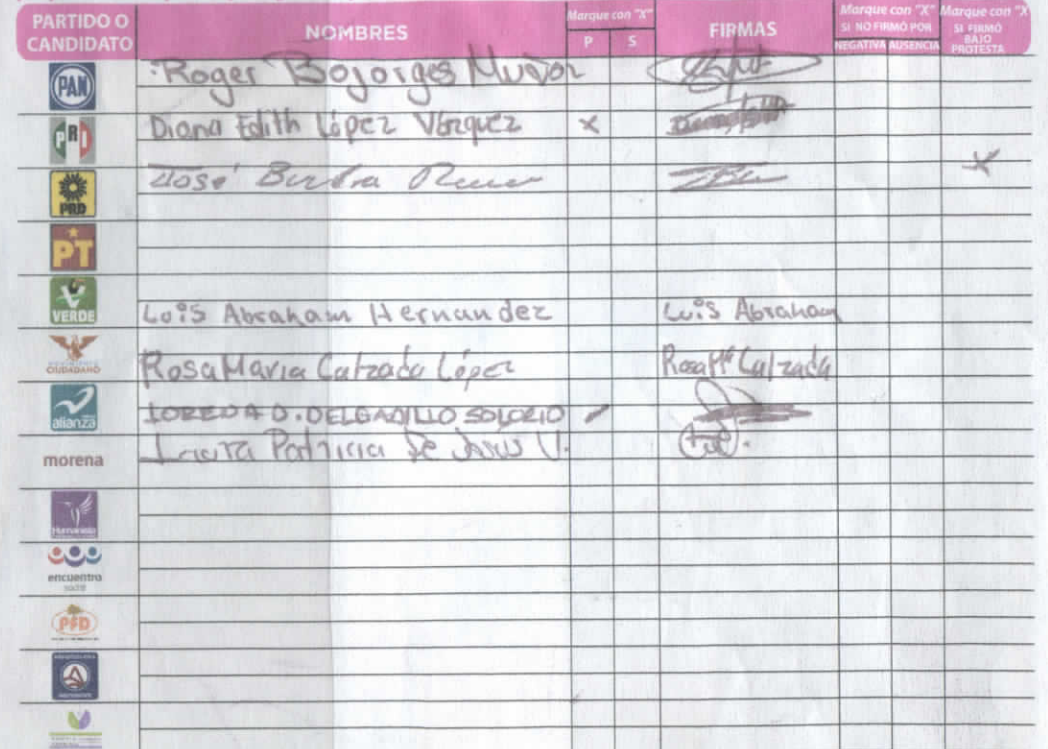 PARTIDO O CANDIDATO NOMBRES Marque con "X" P S FIRMAS Marque con "X" SI NO FIRMÓ POR NEGATIVA AUSENCIA Marque con "X SI FIRMÓ BAJO PROTESTA
PAN Roger Bojorges Muñoz
PRI Diana Edith López Vázquez X
PRD José X
PT
VERDE Luis Abraham Hernandez Luis Abraham
CIUDADANO Rosa Maria Calzada López Rosa Mª Calzada
alianza LORENA D. DELGADILLO SOLORIO
morena Laura Patricia De Jesus V.
Humanista
encuentro social
PFD